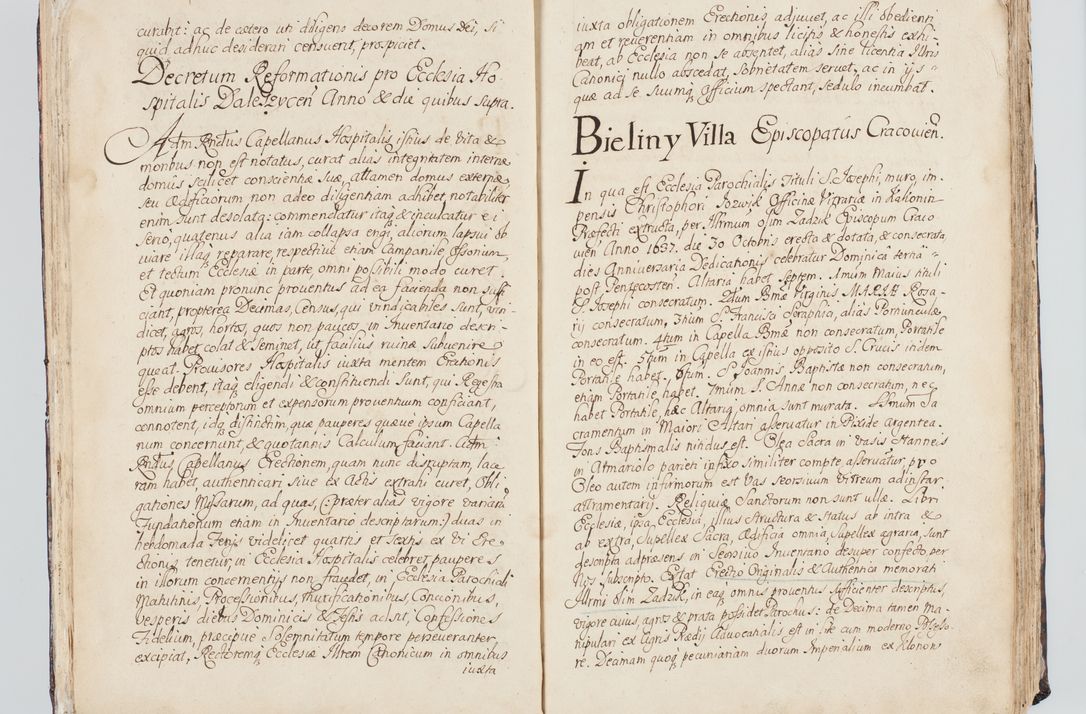 curabit: ac de cætero uti diligens decorem Domus Dei, si
quid adhuc desiderari censuerit, prospiciet.
Decretum Reformationis pro Ecclesia Ho-
spitalis Daleszycen Anno & die quibus supra.
Adm. Rndus Capellanus Hospitalis istius de vita &
moribus non est notatus, curat alias integritatem internæ
domus scilicet conscientiæ suæ, attamen domus externæ,
seu ædificiorum non adeo diligentiam adhibet, notabiliter
enim sunt desolata: commendatur itaq & inculcatur ei
serio, quatenus alia iam collapsa erigi, aliorum lapsui ob
viare, illaq reparare, respective etiam Campanile, Ossorium,
et tectum Ecclesiæ in parte omni possibili modo curet.
Et quoniam pronunc proventus ad ea facienda non suffi
ciant, propterea Decimas, Census, qui vindicabiles sunt, vin-
dicet, agros, hortos, quos non paucos in Inventario descri-
ptos habet, colat & seminet, ut facilius ruinæ subvenire
queat. Provisores Hospitalis iuxta mentem Erectionis
esse debent, itaq eligendi & constituendi sunt, qui Regestra
omnium perceptorum et expensorum proventuum conficiant,
connotent, idq distinctim, quæ pauperes quæve ipsum Capella
num concernunt, & quotannis Calculum faciant. Adm
Rndus Capellanus Erectionem, quam nunc disruptam, lace
ram habet, authenticari sive ex Actis extrahi curet, Obli
gationes Missarum, ad quas, (præter alias vigore variarū
Fundationum etiam in Inventario descriptarum:) duas in
hebdomada Feriis videlicet quartis et Sextis ex vi Ere
ctionis tenetur, in Ecclesia Hospitalis celebret, pauperes
in illorum concernentiis non fraudet, in Ecclesia Parochiali
Matutinis, Processionibus, Thurificationibus, Concionibus,
Vesperis diebus Dominicis & Festis adsit, Confessiones
Fidelium, præcipue Solemnitatum tempore perseveranter,
excipiat, Rectoremq Ecclesiæ Illrem Canonicum in omnibus
iuxta
iuxta obligationem Erectionis, adjuvet, ac illi obedienti
am et reverentiam in omnibus licitis & honestis exhi
beat, ab Ecclesia non se absentet, alias sine licentia Illris
Canonici nullo abscedat, sobrietatem servet, ac in iis-
quæ ad se suumq Officium spectant, sedulo incumbat.
Bieliny Villa Episcopatus Cracovien.
In qua est Ecclesia Parochialis Tituli S. Josephi, muro, im-
pensis Christophori Bozwik Officinæ Vitrariæ in Rakonin
Præfecti extructa, per Illrmum olim Zadzik Episcopum Craco
vien Anno 1637. die 30 Octobris erecta & dotata, & consecrata,
dies Anniversaria Dedicationis celebratur Dominica tertia
post Pentecosten. Altaria habet septem. 1mum Maius tituli
S. Josephi consecratum. 2dum Bmæ Virginis MARIÆ Rosa-
rii consecratum, 3tium S. Francisci Seraphici, alias Portiunculæ,
consecratum. 4tum in Capella Bmæ non consecratum, Portatile
in eo est. 5tum in Capella ex istius opposito S. Crucis itidem
Portatile habet, 6tum S. Joannis Baptistæ non consecratum,
etiam Portatile habet. 7mum S. Annæ non consecratum, nec
habet Portatile, hæc Altaria omnia sunt murata. SSmum Sa
cramentum in Maiori Altari asservatur in Pixide argentea.
Fons Baptismalis nitidus est. Olea Sacra in vasis stanneis
in Almariolo parieti infixo similiter compte asservatur, pro
Oleo autem infirmorum est Vas seorsivum vitreum ad instar
attramentarii. Reliquiæ Sanctorum non sunt ullæ. Libri
Ecclesiæ, ipsa Ecclesia, illius structura & status ab intra &
ab extra, Supellex Sacra, Ædificia omnia, Supellex agraria, sunt
descripta adpræsens in Seorsivo Inventario desuper confecto per
Nos subscripto. Extat Erectio Originalis & Authentica memorati
Illrmi olim Zadzik, in eaq omnis proventus sufficienter descriptus,
vigore cuius, agros & prata possidet Parochus: de Decima tamen Ma-
nipulari ex agris Prædii Advocatialis est in lite cum moderno Posseso-
re. Decimam quoq pecuniariam duorum Imperialium ex Honoris